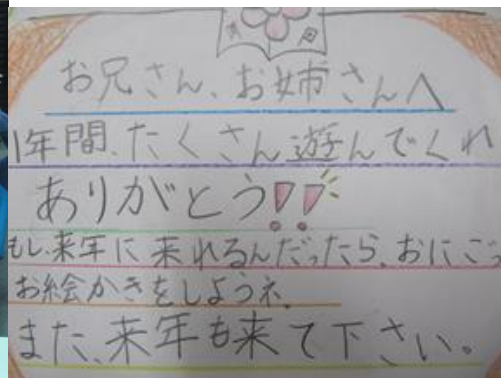 お兄さん、お姉さんへ
1年間、たくさん遊んでくれ
ありがとう!!
もし、来年に来れるんだったら、おにごっ
お絵かきをしようネ。
また、来年も来て下さい。